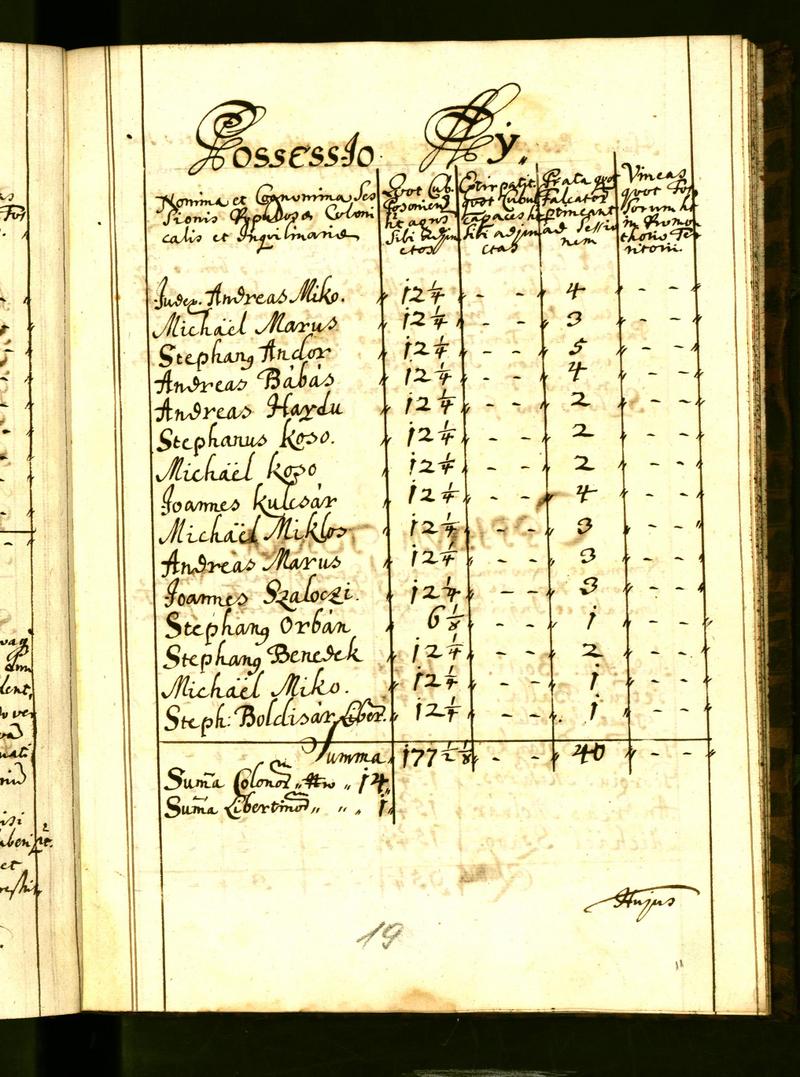 Possessio Ay„
Nomina et Cognomina, Ses
sionis Coloni
calis et Inquilinariae
Quot Cub.
Posonien
ht agros
sibi adjun
ctos
Extirpatit
quot Cubul
capaces ht
sibi adjun
ctas
Prata quot
Falcator
pertineant
ad Sessio
nem
Vineas
quot Fos
sorum ht
in Promo
thorio Ter
ritorii.
Judex. Andreas Miko. „ 12 1/4 „ - - „ 4 „ - - „
Michaël Marus „ 12 1/4 „ - - „ 3 „ - - „
Stephang Andor „ 12 1/4 „ - - „ 5 „ - - „
Andreas Bábás „ 12 1/4 „ - - „ 4 „ - - „
Andreas Haydu „ 12 1/4 „ - - „ 2 „ - - „
Stephanus Koso. „ 12 1/4 „ - - „ 2 „ - - „
Michaël Koso „ 12 1/4 „ - - „ 2 „ - - „
Joannes Kulcsár „ 12 1/4 „ - - „ 4 „ - - „
Michaël Miklos „ 12 1/4 „ - - „ 3 „ - - „
Andreas Marus „ 12 1/4 „ - - „ 3 „ - - „
Joannes Szaloczi. „ 12 1/4 „ - - „ 3 „ - - „
Stephang Orbán „ 6 1/8 „ - - „ 1 „ - - „
Stephang Benedek „ 12 1/4 „ - - „ 2 „ - - „
Michaël Miko. „ 12 1/4 „ - - „ 1 „ - - „
Steph: Boldisár Liber. „ 12 1/4 „ - - „ 1 „ - - „
Summa „ 177 1/2 1/8 „ - - „ 40 „ - - „
Suma Colonor „ „ 14 „
Suma Libertinor „ „ „ 1 „
Hujus
19